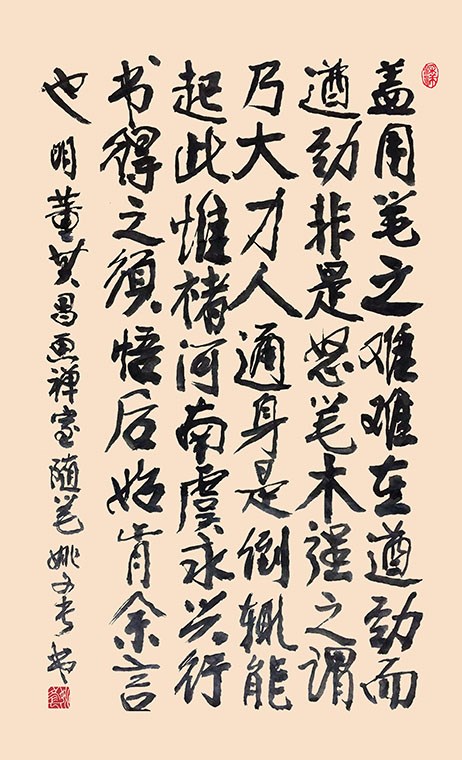 盖用笔之难难在遒劲而
遒劲非是怒笔木强之谓
乃大力人通身是倒辄能
起此惟褚河南虞永兴行
书得之须悟后始肯余言
也 明董其昌画禅室随笔 姚 书